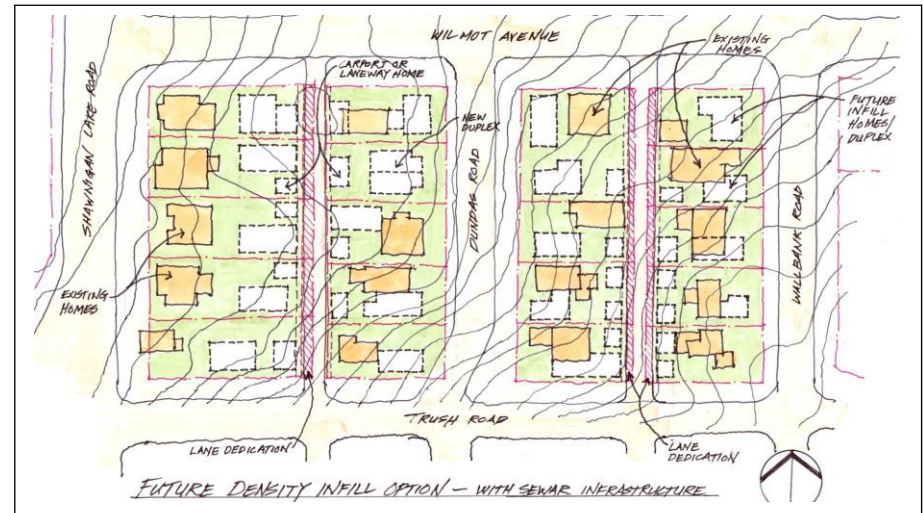 WILMOT AVENUE
SHAWNIGAN LAKE ROAD
CARPORT OR
LANEWAY HOME
NEW
DUPLEX
DUNDAS ROAD
EXISTING
HOMES
FUTURE
INFILL
HOMES/
DUPLEX
WALLBANK ROAD
EXISTING
HOMES
TRUSH ROAD
LANE DEDICATION
LANE
DEDICATION
FUTURE DENSITY INFILL OPTION – WITH SEWAR INFRASTRUCTURE